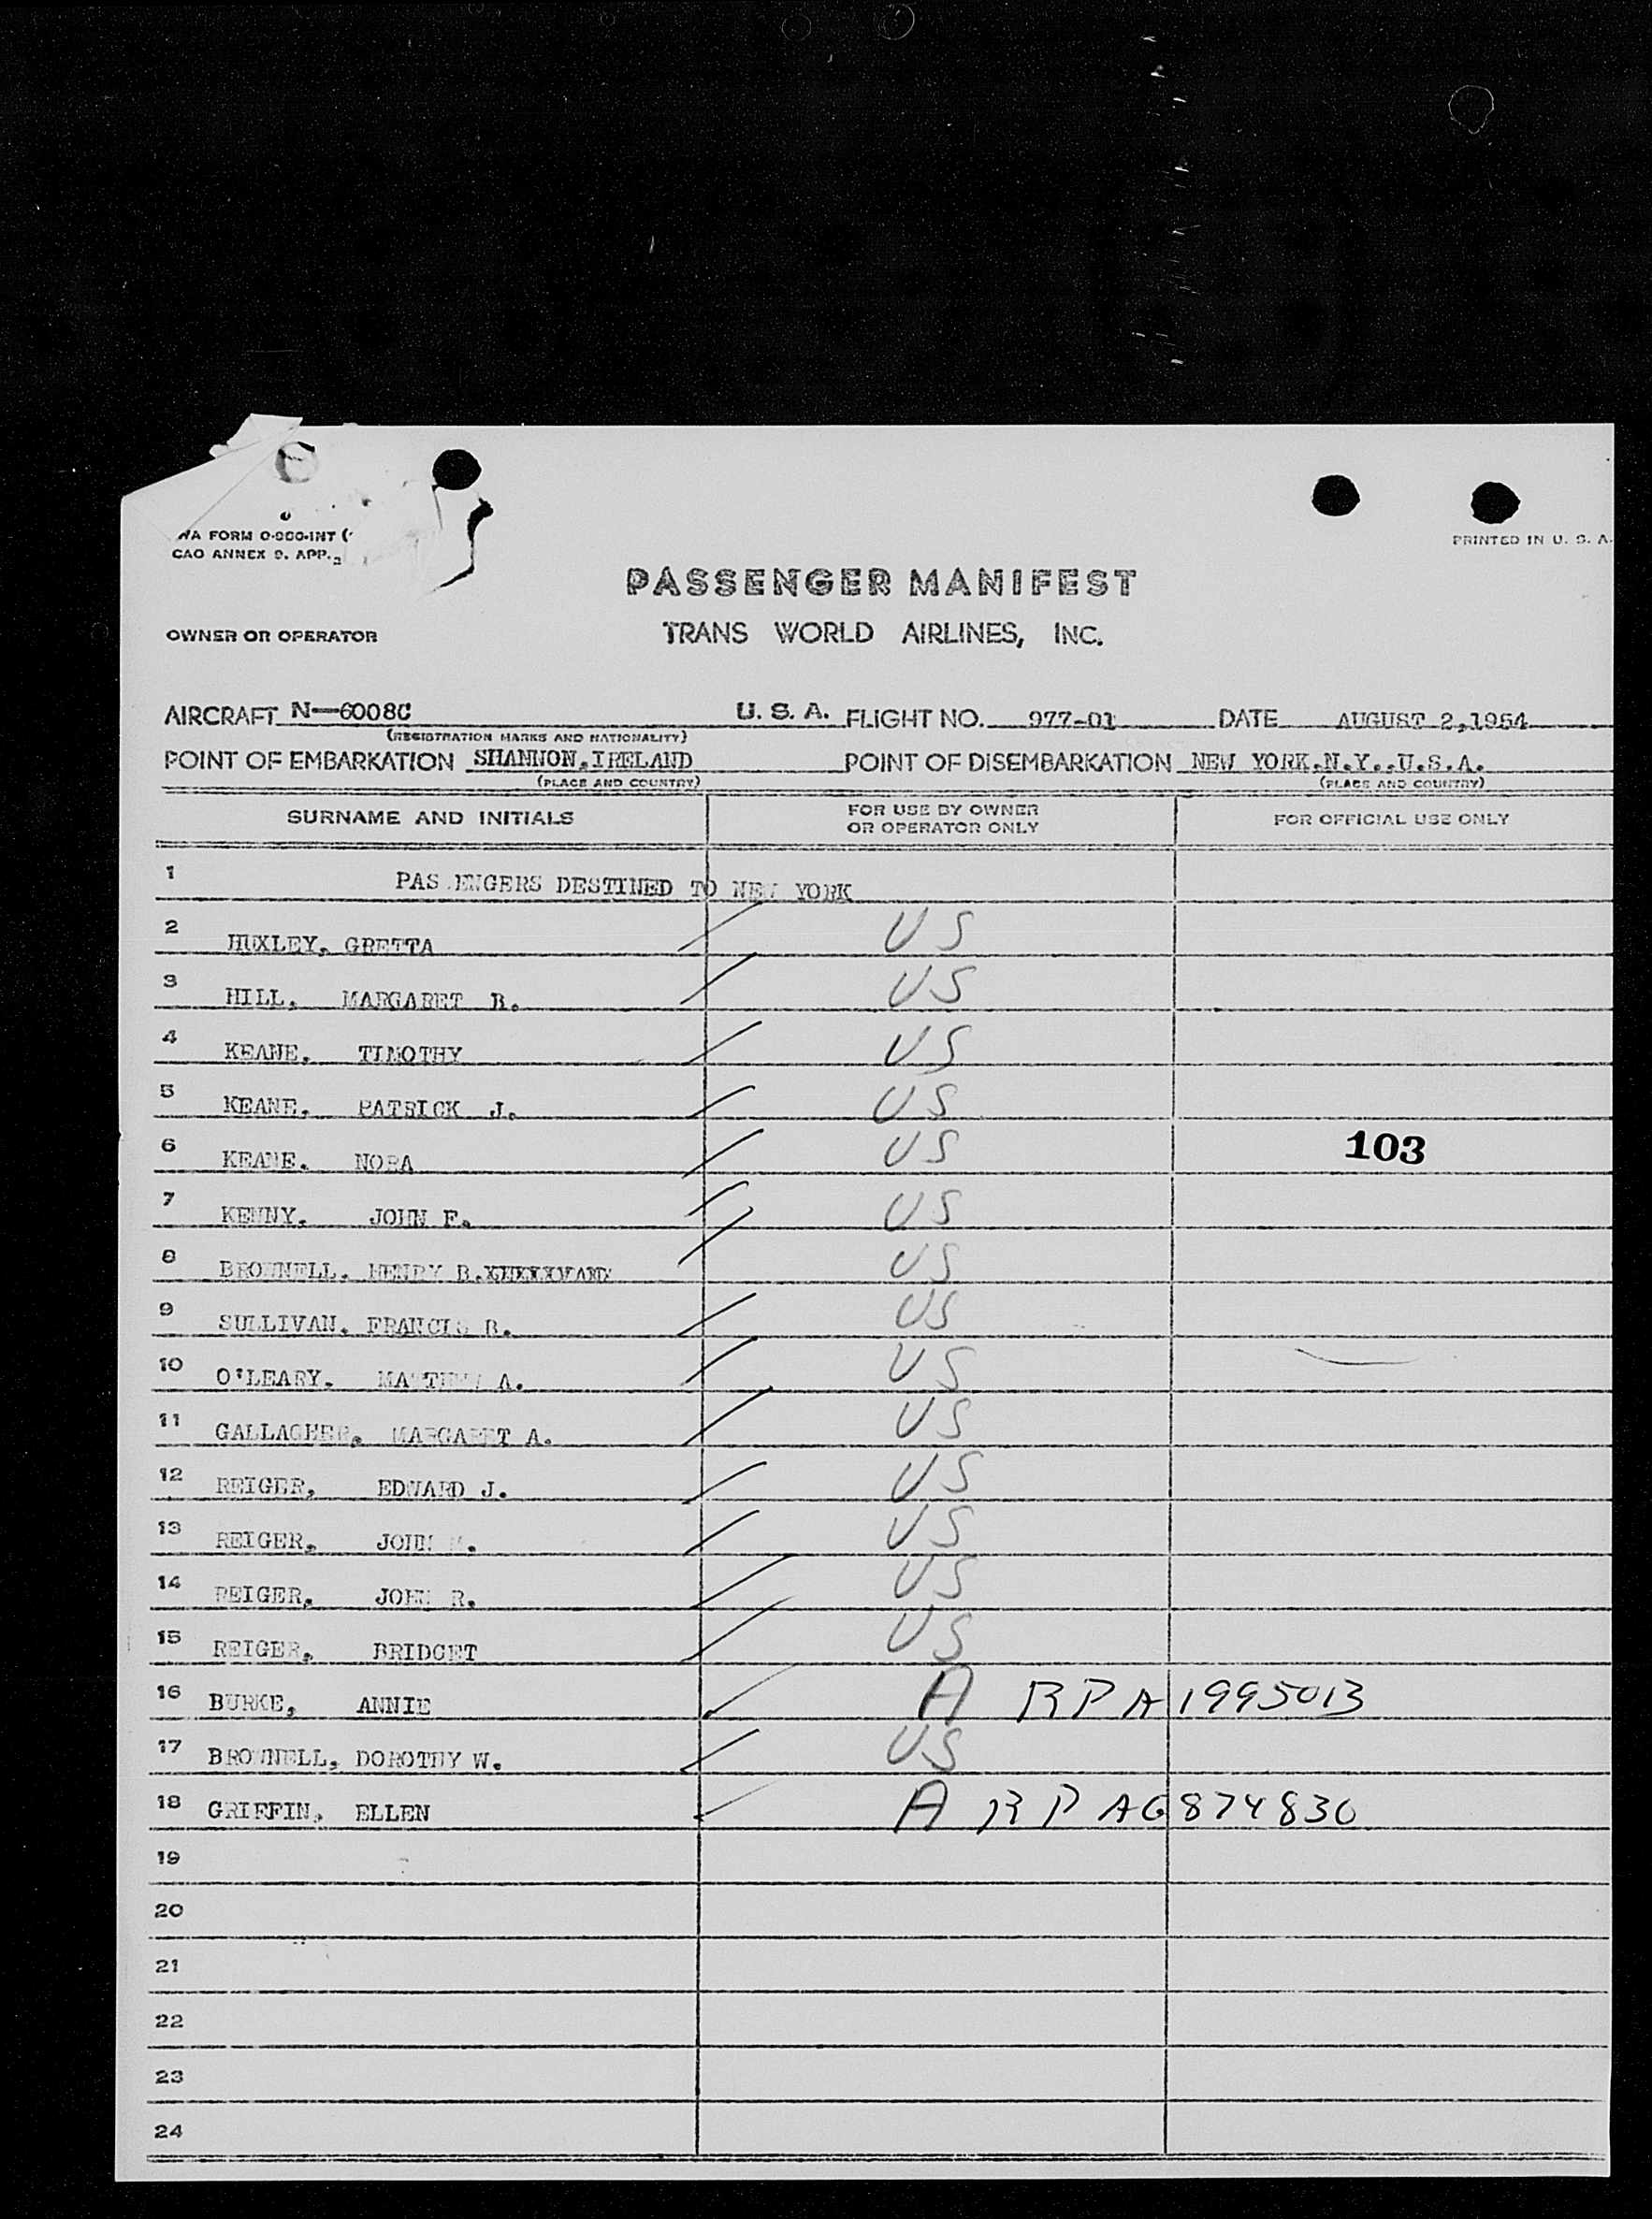 WA FORM 0-960-INT (
CAO ANNEX 9. APP.
PRINTED IN U. S. A.
PASSENGER MANIFEST
OWNER OR OPERATOR TRANS WORLD AIRLINES, INC.
AIRCRAFT N-6008C U. S. A. FLIGHT NO. 977-01 DATE AUGUST 2,1954
(REGISTRATION MARKS AND NATIONALITY)
POINT OF EMBARKATION SHANNON,IRELAND POINT OF DISEMBARKATION NEW YORK,N.Y.,U.S.A.
(PLACE AND COUNTRY) (PLACE AND COUNTRY)
SURNAME AND INITIALS FOR USE BY OWNER OR OPERATOR ONLY FOR OFFICIAL USE ONLY
1 PASSENGERS DESTINED TO NEW YORK
2 HUXLEY, GRETTA US
3 HILL, MARGARET B. US
4 KEANE, TIMOTHY US
5 KEANE, PATRICK J. US
6 KEANE, NORA US 103
7 KENNY, JOHN F. US
8 BROWNELL, HENRY B. US
9 SULLIVAN, FRANCIS B. US
10 O'LEARY, MATTHEW A. US
11 GALLAGHER, MARGARET A. US
12 REIGER, EDWARD J. US
13 REIGER, JOHN M. US
14 REIGER, JOHN R. US
15 REIGER, BRIDGET US
16 BURKE, ANNIE A RP A1995013
17 BROWNELL, DOROTHY W. US
18 GRIFFIN, ELLEN A RP A6874830
19
20
21
22
23
24